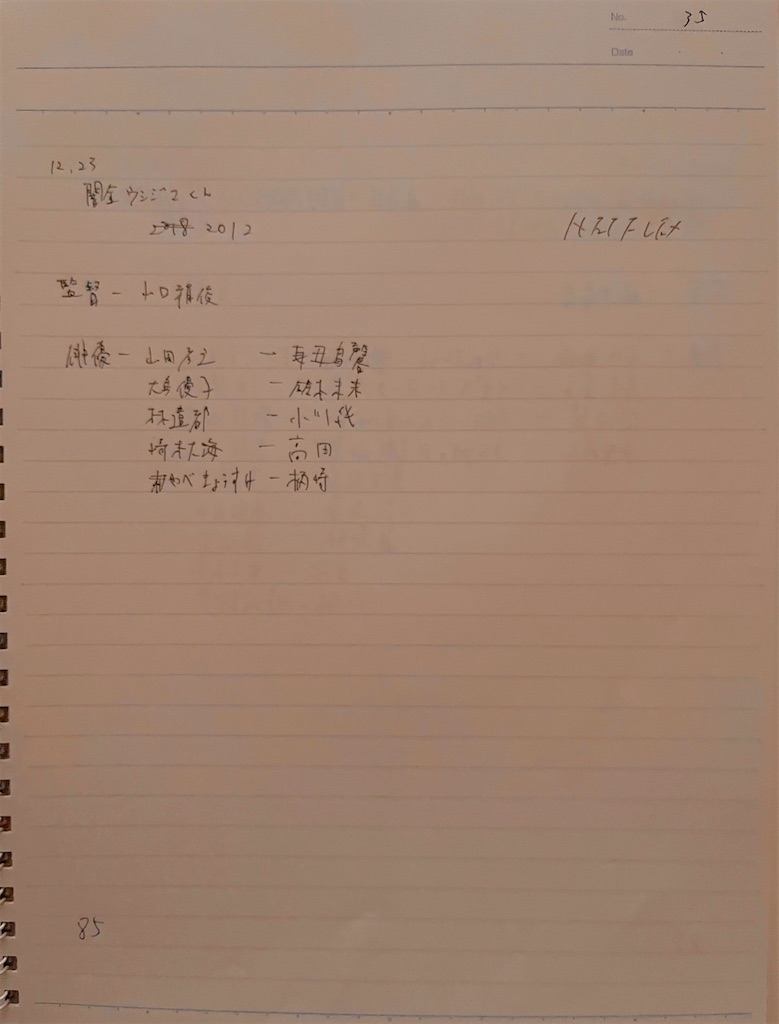 No. 35
Date
12.23
闇金ウシジマくん
2012
NETFLIX
監督ー山口雅俊
俳優ー山田孝之 ー 丑嶋馨
大島優子 ー 鈴木未來
林遣都 ー 小川純
崎本大海 ー 高田
やべきょうすけ ー 柄崎
85